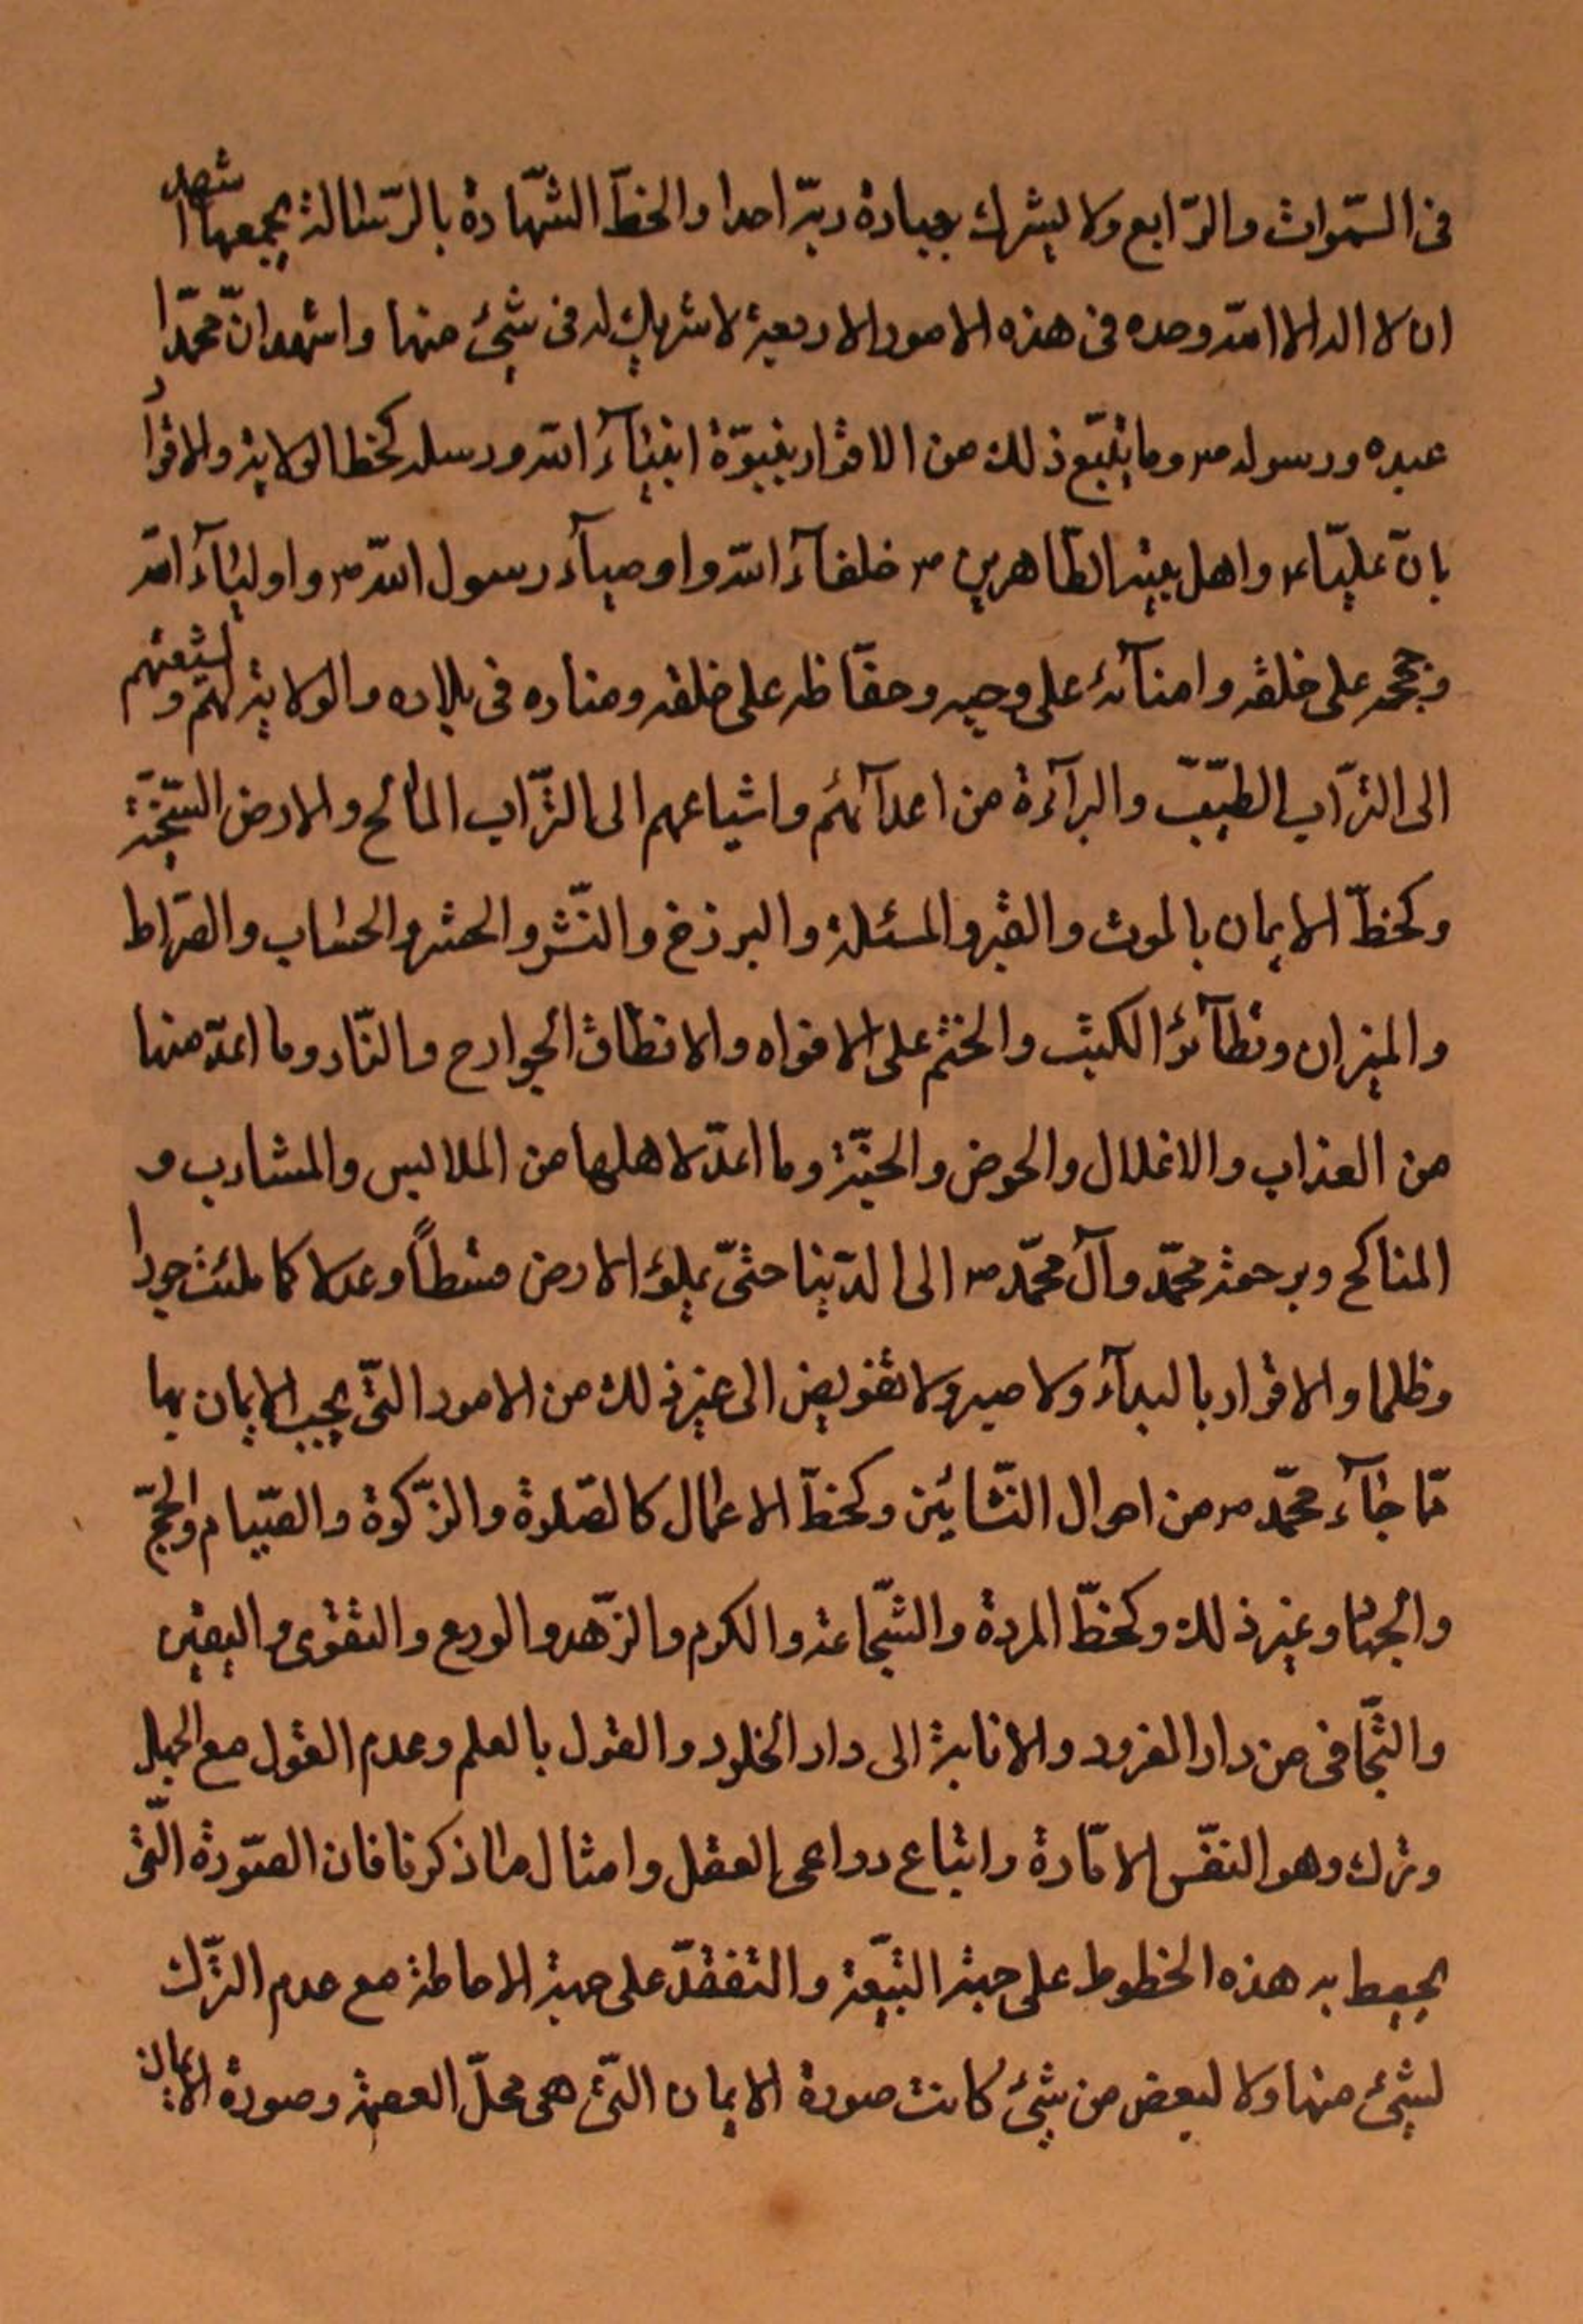 فى السّموات والرّابع ولا يشرك بعبادة ربّه احدا والخطّ الشّهادة بالرّسالة يجمعها اشهد
ان لا اله الا الله وحده فى هذه الامور الاربعة لا شريك له فى شيئ منها واشهد انّ محمّدا
عبده ورسوله ص وما يتبع ذلك من الاقرار بنبوّة انبيآء الله ورسله كخط الولاية والاقرار
بانّ عليّا ع واهل بيته الطّاهرين ص خلفآء الله واوصيآء رسول الله ص واوليآء الله
وحججه على خلقه وامنآئه على وحيه وحفّاظه على خلقه ومناره فى بلاده والولاية لهم ولشيعتهم
الى التّراب الطيّب والبرآءة من اعدآئهم واشياعهم الى التّراب المالح والارض السّبخة
وكخطّ الايمان بالموت والقبر والمسئلة والبرزخ والنّشر والحشر والحساب والصّراط
والميزان وتطآئر الكتب والختم على الافواه والانطاق الجوارح والنّار وما اعدّ منها
من العذاب والاغلال والحوض والجنّة وما اعدّ لاهلها من الملابس والمشارب و
المناكح وبرجعة محمّد وآل محمّد ص الى الدّنيا حتّى يملؤ الارض قسطاً وعدلا كما ملئت جورا
وظلما والاقرار بالبدآء ولا صبر ولا تفويض الى غير ذلك من الامور التّى يجب الايمان بها
ممّا جآء محمّد ص من احوال النّشأتين وكخطّ الاعمال كالصّلوة والزّكوة والصّيام والحجّ
والجهاد وغير ذلك وكخطّ المروة والشّجاعة والكرم والزّهد والورع والتقوى واليقين
والتّجافى من دار الغرور والانابة الى دار الخلود والقول بالعلم وعدم القول مع الجهل
وترك وهو النفس الامّارة واتباع دواعى العقل وامثال ما ذكرنا فان الصّورة الّتى
يحيط به هذه الخطوط على جهة التّبعة والتفقّد على جهة الاحاطة مع عدم التّرك
لشيئ منها ولا لبعض من شيئ كانت صورة الايمان التّى هى محلّ العصمة وصورة الايمان